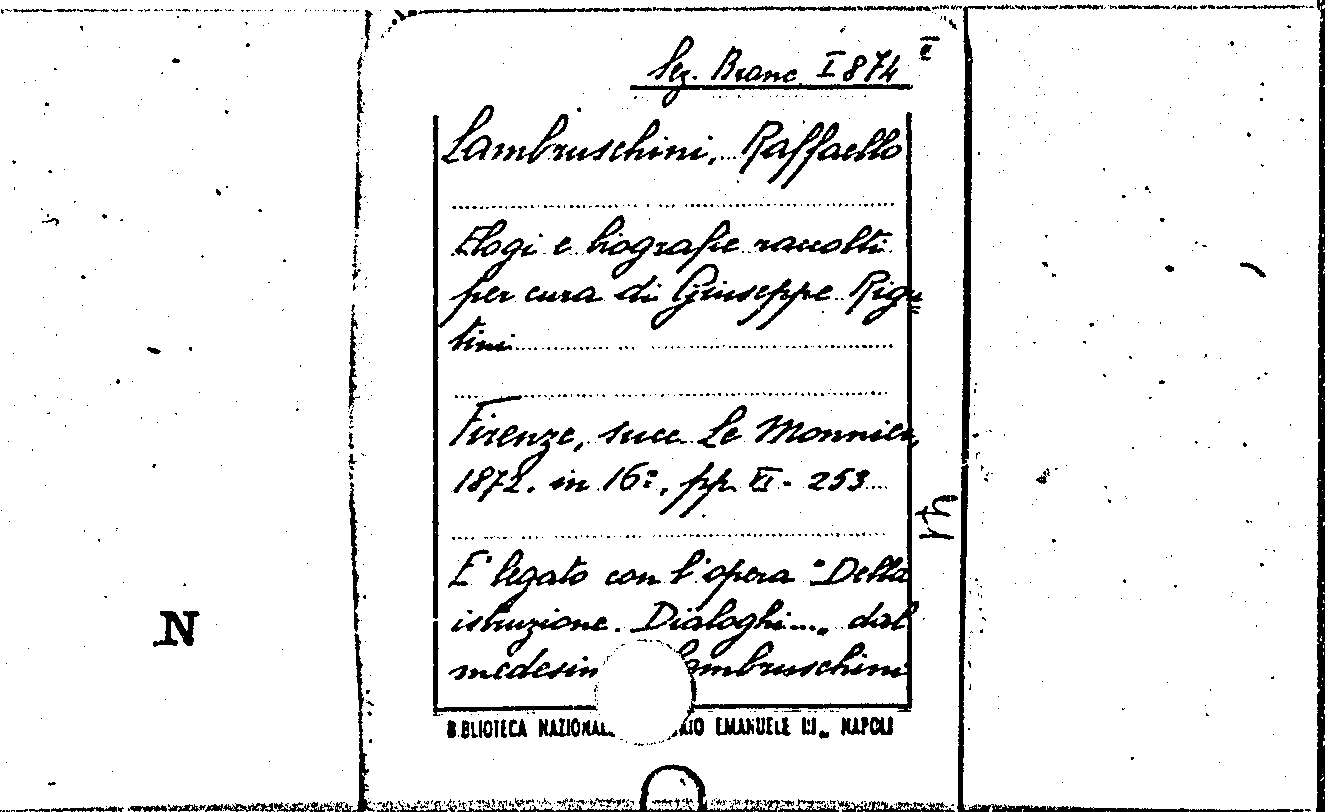 Sez. Branc I 874 E
Lambruschini, Raffaello
Elogi e biografie raccolti
per cura di Giuseppe Rigu=
tini
Firenze, succ. Le Monnier,
1872. in 16°, pp. VI - 253
E' legato con l'opera "Della
istruzione. Dialoghi...„ dal
medesim ambruschini
BIBLIOTECA NAZIONAL RIO EMANUELE III„ NAPOLI
N